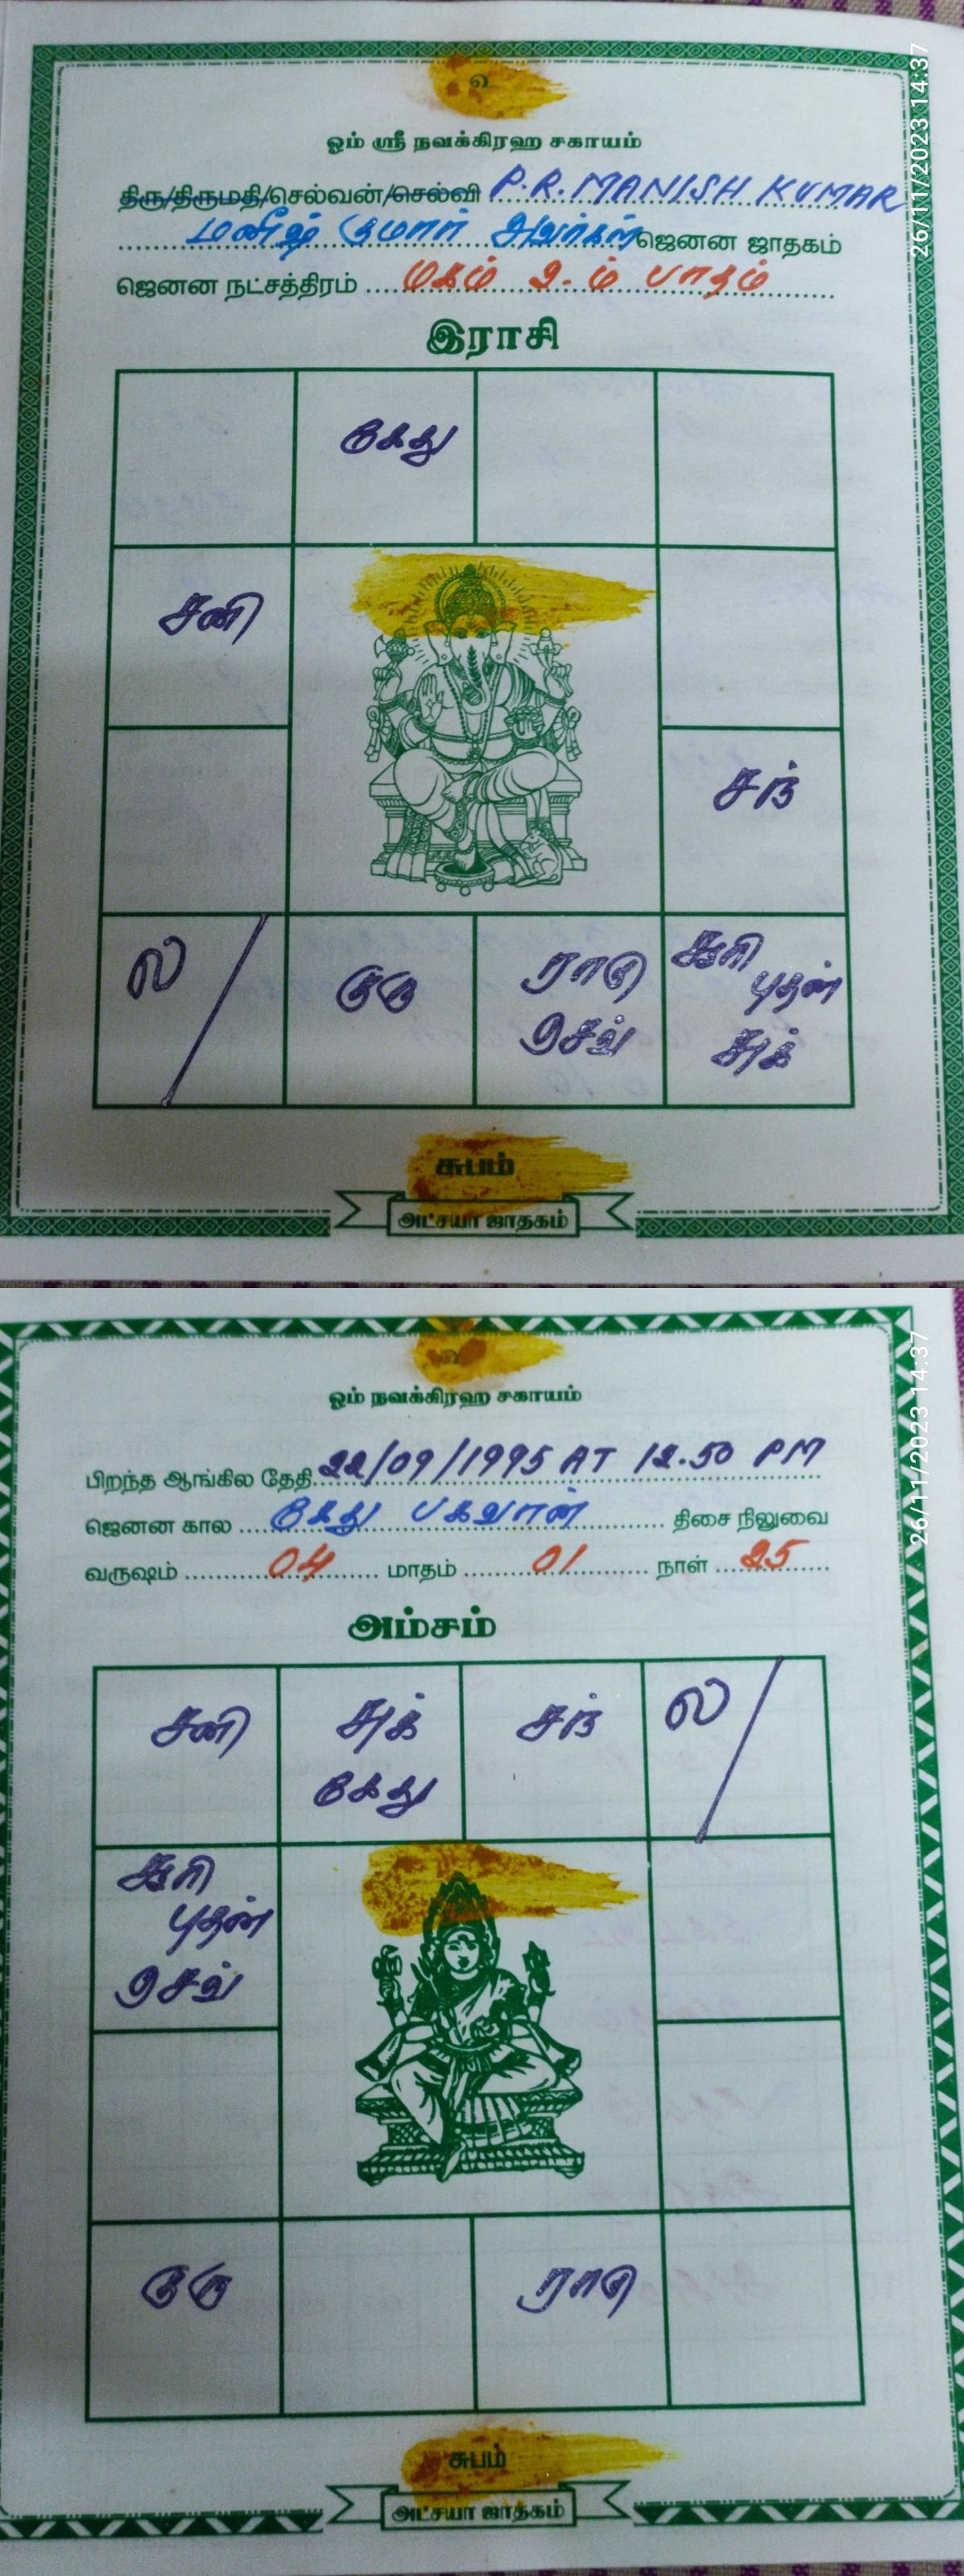 உ
ஓம் ஸ்ரீ நவக்கிரஹ சகாயம்
திரு/திருமதி/செல்வன்/செல்வி P.R. MANISH KUMAR
மனீஷ் குமார் அவர்கள் ஜெனன ஜாதகம்
ஜெனன நட்சத்திரம் மகம் 2-ம் பாதம்
இராசி
கேது
சனி
சந்
ல/ குரு ராகு செவ் சூரி புதன் சுக்
சுபம்
அட்சயா ஜாதகம்
26/11/2023 14:37
உ
ஓம் நவக்கிரஹ சகாயம்
பிறந்த ஆங்கில தேதி 22/09/1995 AT 12.50 PM
ஜெனன கால கேது பகவான் திசை நிலுவை
வருஷம் 04 மாதம் 01 நாள் 25
அம்சம்
சனி சுக் கேது சந் ல/
சூரி
புதன்
செவ்
குரு ராகு
சுபம்
அட்சயா ஜாதகம்
26/11/2023 14:37